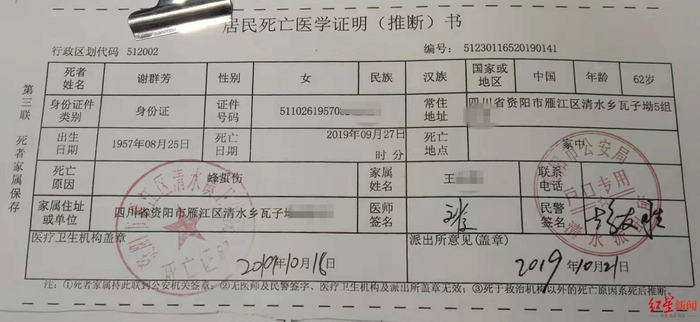 居民死亡医学证明（推断）书
行政区划代码 512002 编号: 51230116520190141
死者姓名 谢群芳 性别 女 民族 汉族 国家或地区 中国 年龄 62岁
身份证件类别 身份证 证件号码 51102619570 常住地址 四川省资阳市雁江区清水乡瓦子坳5组
出生日期 1957年08月25日 死亡日期 2019年09月27日 时 分 死亡地点 家中
死亡原因 蜂蜇伤 家属姓名 王 联系电话
家属住址或单位 四川省资阳市雁江区清水乡瓦子坳 医师签名 民警签名
医疗卫生机构盖章 派出所意见(盖章)
2019年10月16日 2019年10月21日
注:①死者家属持此联到公安机关签章;②无医师及民警签字、医疗卫生机构及派出所盖章无效;③死于救治机构以外的死亡原因系死后推断。
第三联 死者家属保存
红星新闻